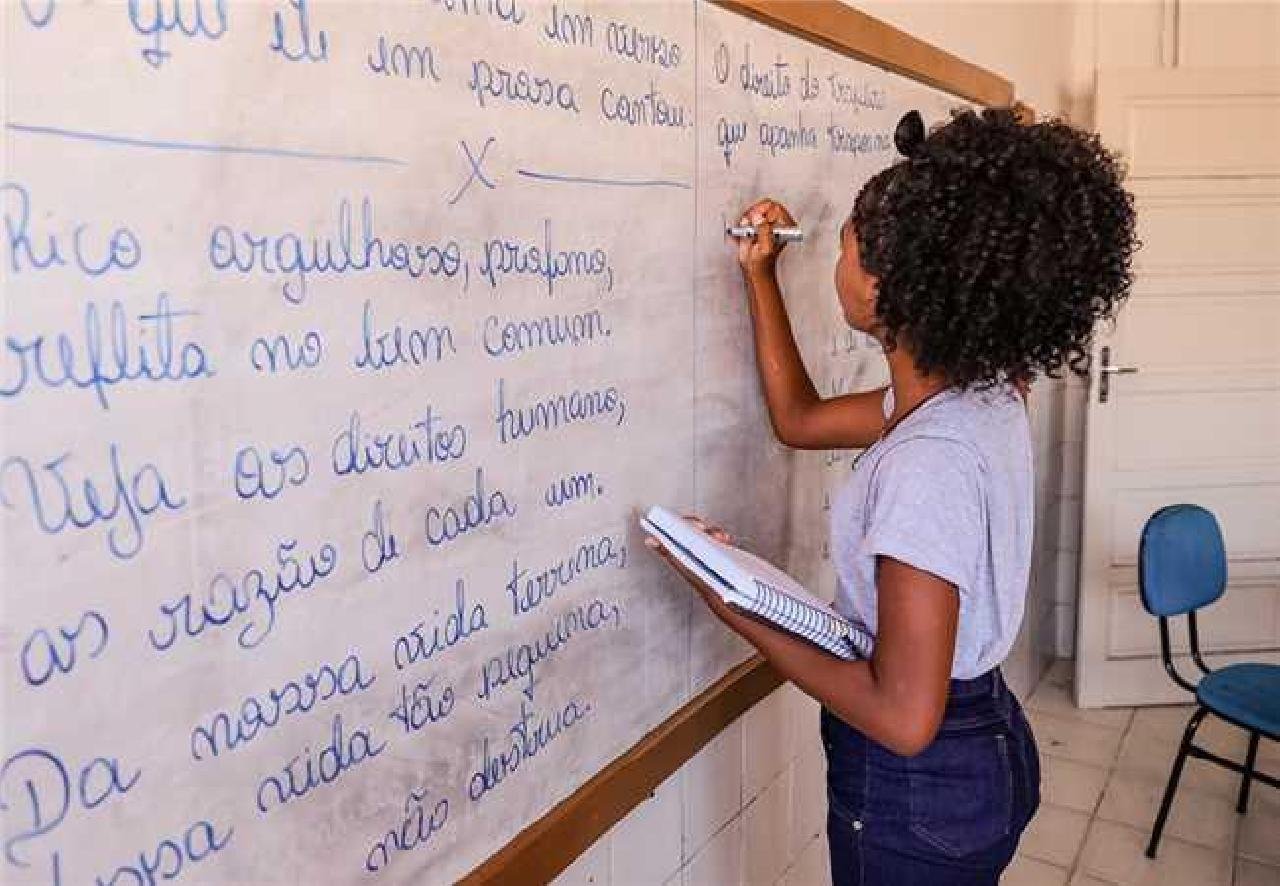 que ele em prosa contou.
em verso
X
Rico orgulhoso, profano,
reflita no bem comum.
Veja os direitos humano,
as razão de cada um.
Da nossa vida terrena,
dessa vida tão pequena,
não destrua.
O direito do
que apanha